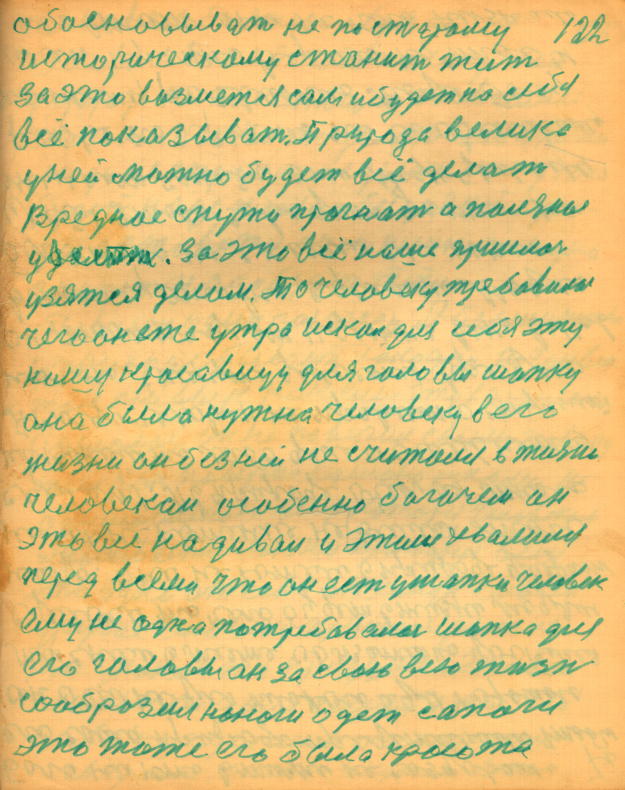 обосновыват не по старому 122
историческому станит жит
За это возмется сам и будет на себя
всё показыват. Природа велика
у ней можно будет всё делат
Вредное с пути прогнат а полезное
. За это всё наше пришлос
узятся делом. То человеку требовалос
чего он уже утра искал для себя эту
нашу красавицу для головы шапку
она была нужна человеку в его
жизни он без ней не считался в жизни
человекам особенно богачем он
Это всё надивал и этим хвалился
перед всеми что он ест у шапки человек
ему не одна потребовалос шапка для
его головы он за свою всю жизн
сооброзил на ноги одет сапоги
это тоже его была красота